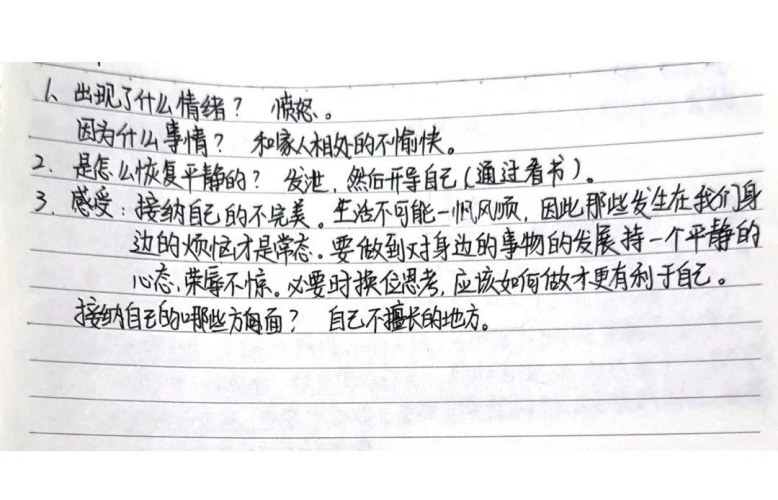 1、出现了什么情绪？ 愤怒。
因为什么事情？ 和家人相处的不愉快。
2、是怎么恢复平静的？ 发泄，然后开导自己（通过看书）。
3、感受：接纳自己的不完美。生活不可能一帆风顺，因此那些发生在我们身
边的烦恼才是常态。要做到对身边的事物的发展持一个平静的
心态，荣辱不惊。必要时换位思考，应该如何做才更有利于自己。
接纳自己的哪些方面？ 自己不擅长的地方。